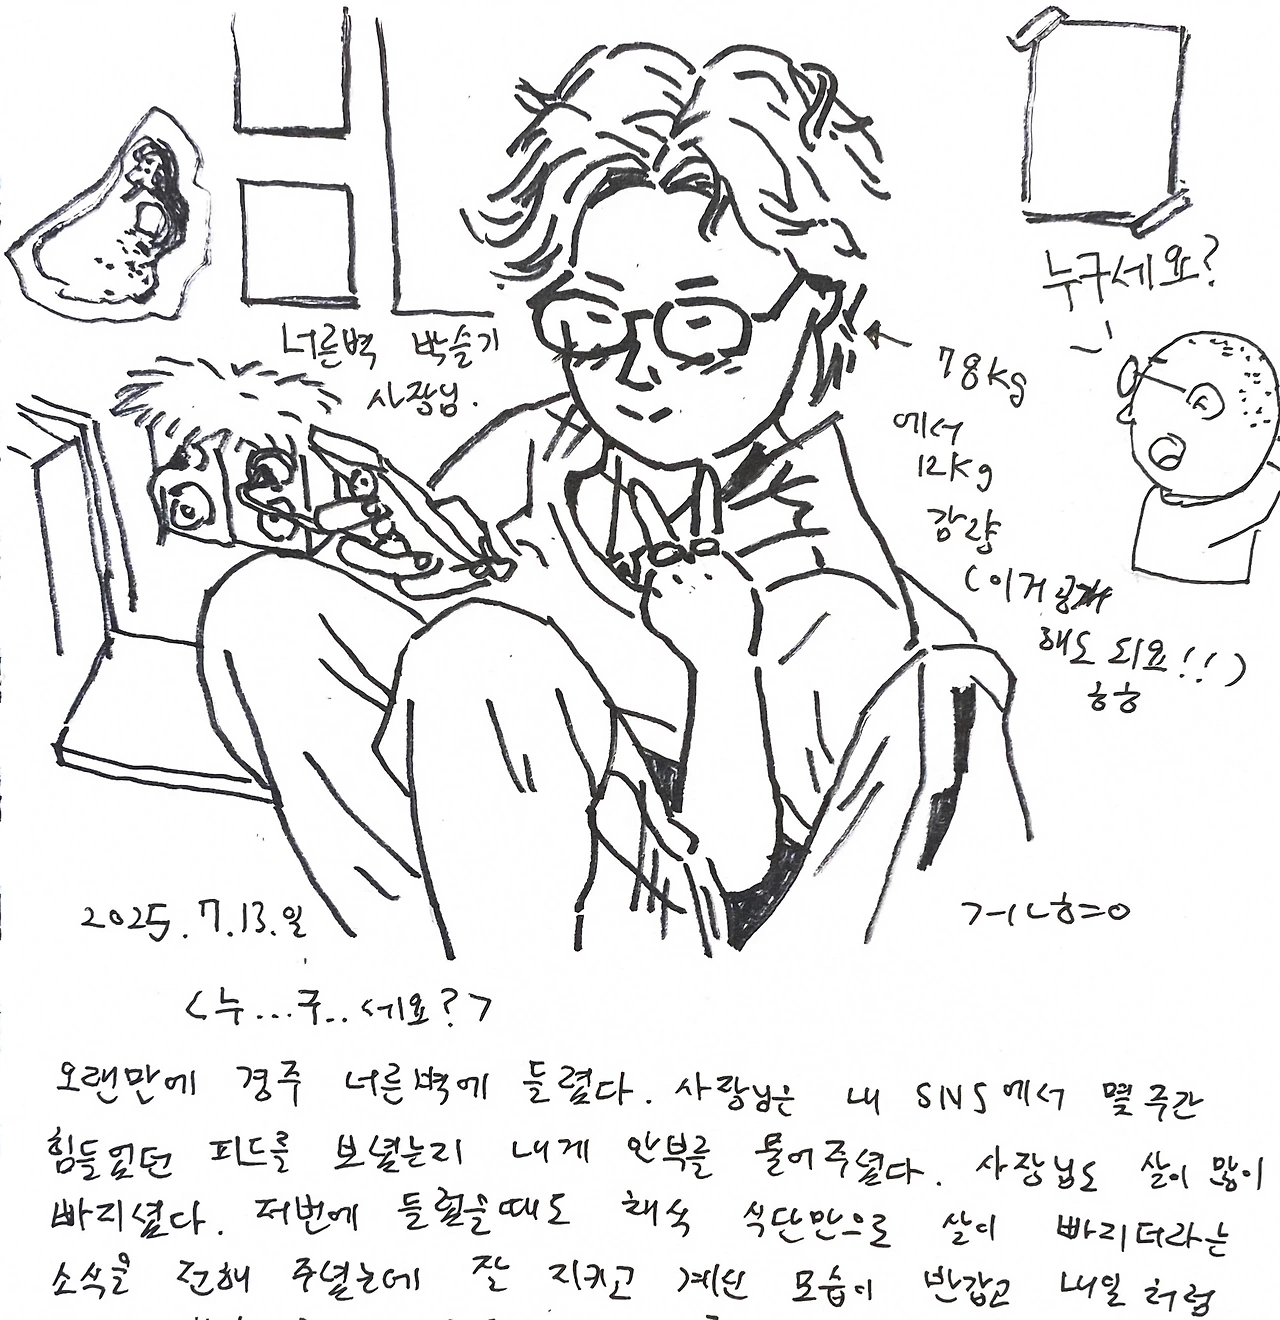 누구세요?
너른벽 박슬기
사장님.
78kg
에서
12kg
감량
(이거 공개
해도 되요!!)
ㅎㅎ
2025. 7. 13. 일
<누...구.. 세요?>
오랜만에 경주 너른벽에 들렸다. 사장님은 내 SNS에서 몇주간
힘들었던 피드를 보셨는지 내게 안부를 물어주셨다. 사장님도 살이 많이
빠지셨다. 저번에 들렸을때도 채식 식단만으로 살이 빠지더라는
소식을 전해 주셨는데 잘 지키고 계신 모습이 반갑고 내일처럼